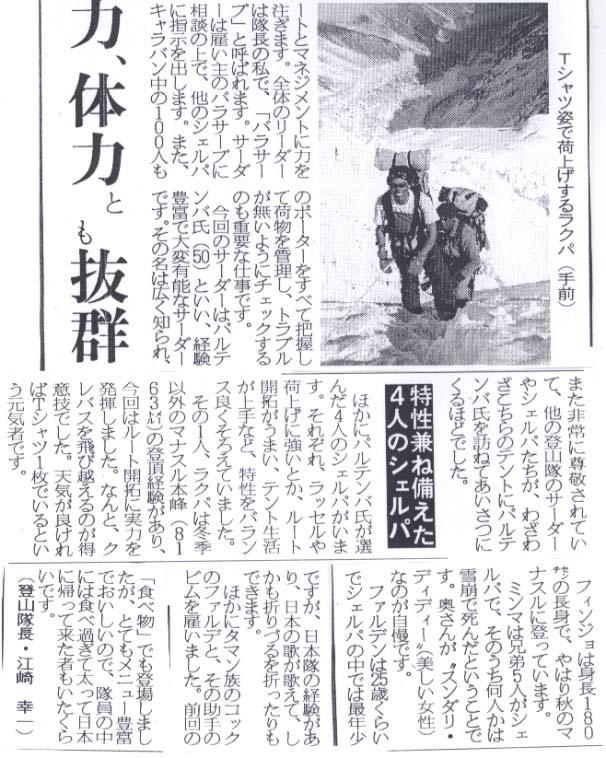 力、体力とも抜群
Tシャツ姿で荷上げするラクパ（手前）
ートとマネジメントに力を
注ぎます。全体のリーダー
は隊長の私で、「バラサー
ブ」と呼ばれます。サーダ
ーは雇い主のバラサーブに
相談の上で、他のシェルパ
に指示を出します。また、
キャラバン中の100人も
のポーターをすべて把握し
て荷物を管理し、トラブル
が無いようにチェックする
のも重要な仕事です。
今回のサーダーはパルテ
ンバ氏（50）といい、経験
豊富で大変有能なサーダー
です。その名は広く知られ、
また非常に尊敬されてい
て、他の登山隊のサーダー
やシェルパたちが、わざわ
ざこちらのテントにパルテ
ンバ氏を訪ねてあいさつに
くるほどでした。
特性兼ね備えた
4人のシェルパ
ほかにパルテンバ氏が選
んだ4人のシェルパがいま
す。それぞれ、ラッセルや
荷上げに強いとか、ルート
開拓がうまい、テント生活
が上手など、特性をバラン
ス良くそろえていました。
その1人、ラクパは冬季
以外のマナスル本峰（81
63㍍）の登頂経験があり、
今回はルート開拓に実力を
発揮しました。なんと、ク
レバスを飛び越えるのが得
意技でした。天気が良けれ
ばTシャツ1枚でいるとい
う元気者です。
フィンジョは身長180
㌢の長身で、やはり秋のマ
ナスルに登っています。
ミンマは兄弟5人がシェ
ルパで、そのうち何人かは
雪崩で死んだということで
す。奥さんが〝スンダリ・
ディディー〟（美しい女性）
なのが自慢です。
ファルデンは25歳くらい
でシェルパの中では最年少
ですが、日本隊の経験があ
り、日本の歌が歌えて、し
かも折りづるを折ったりも
できます。
ほかにタマン族のコック
のファルデと、その助手の
ビムを雇いました。前回の
「食べ物」でも登場しまし
たが、とてもメニュー豊富
でおいしいので、隊員の中
には食べ過ぎて太って日本
に帰って来た者もいたくら
いです。
（登山隊長・江崎 幸一）